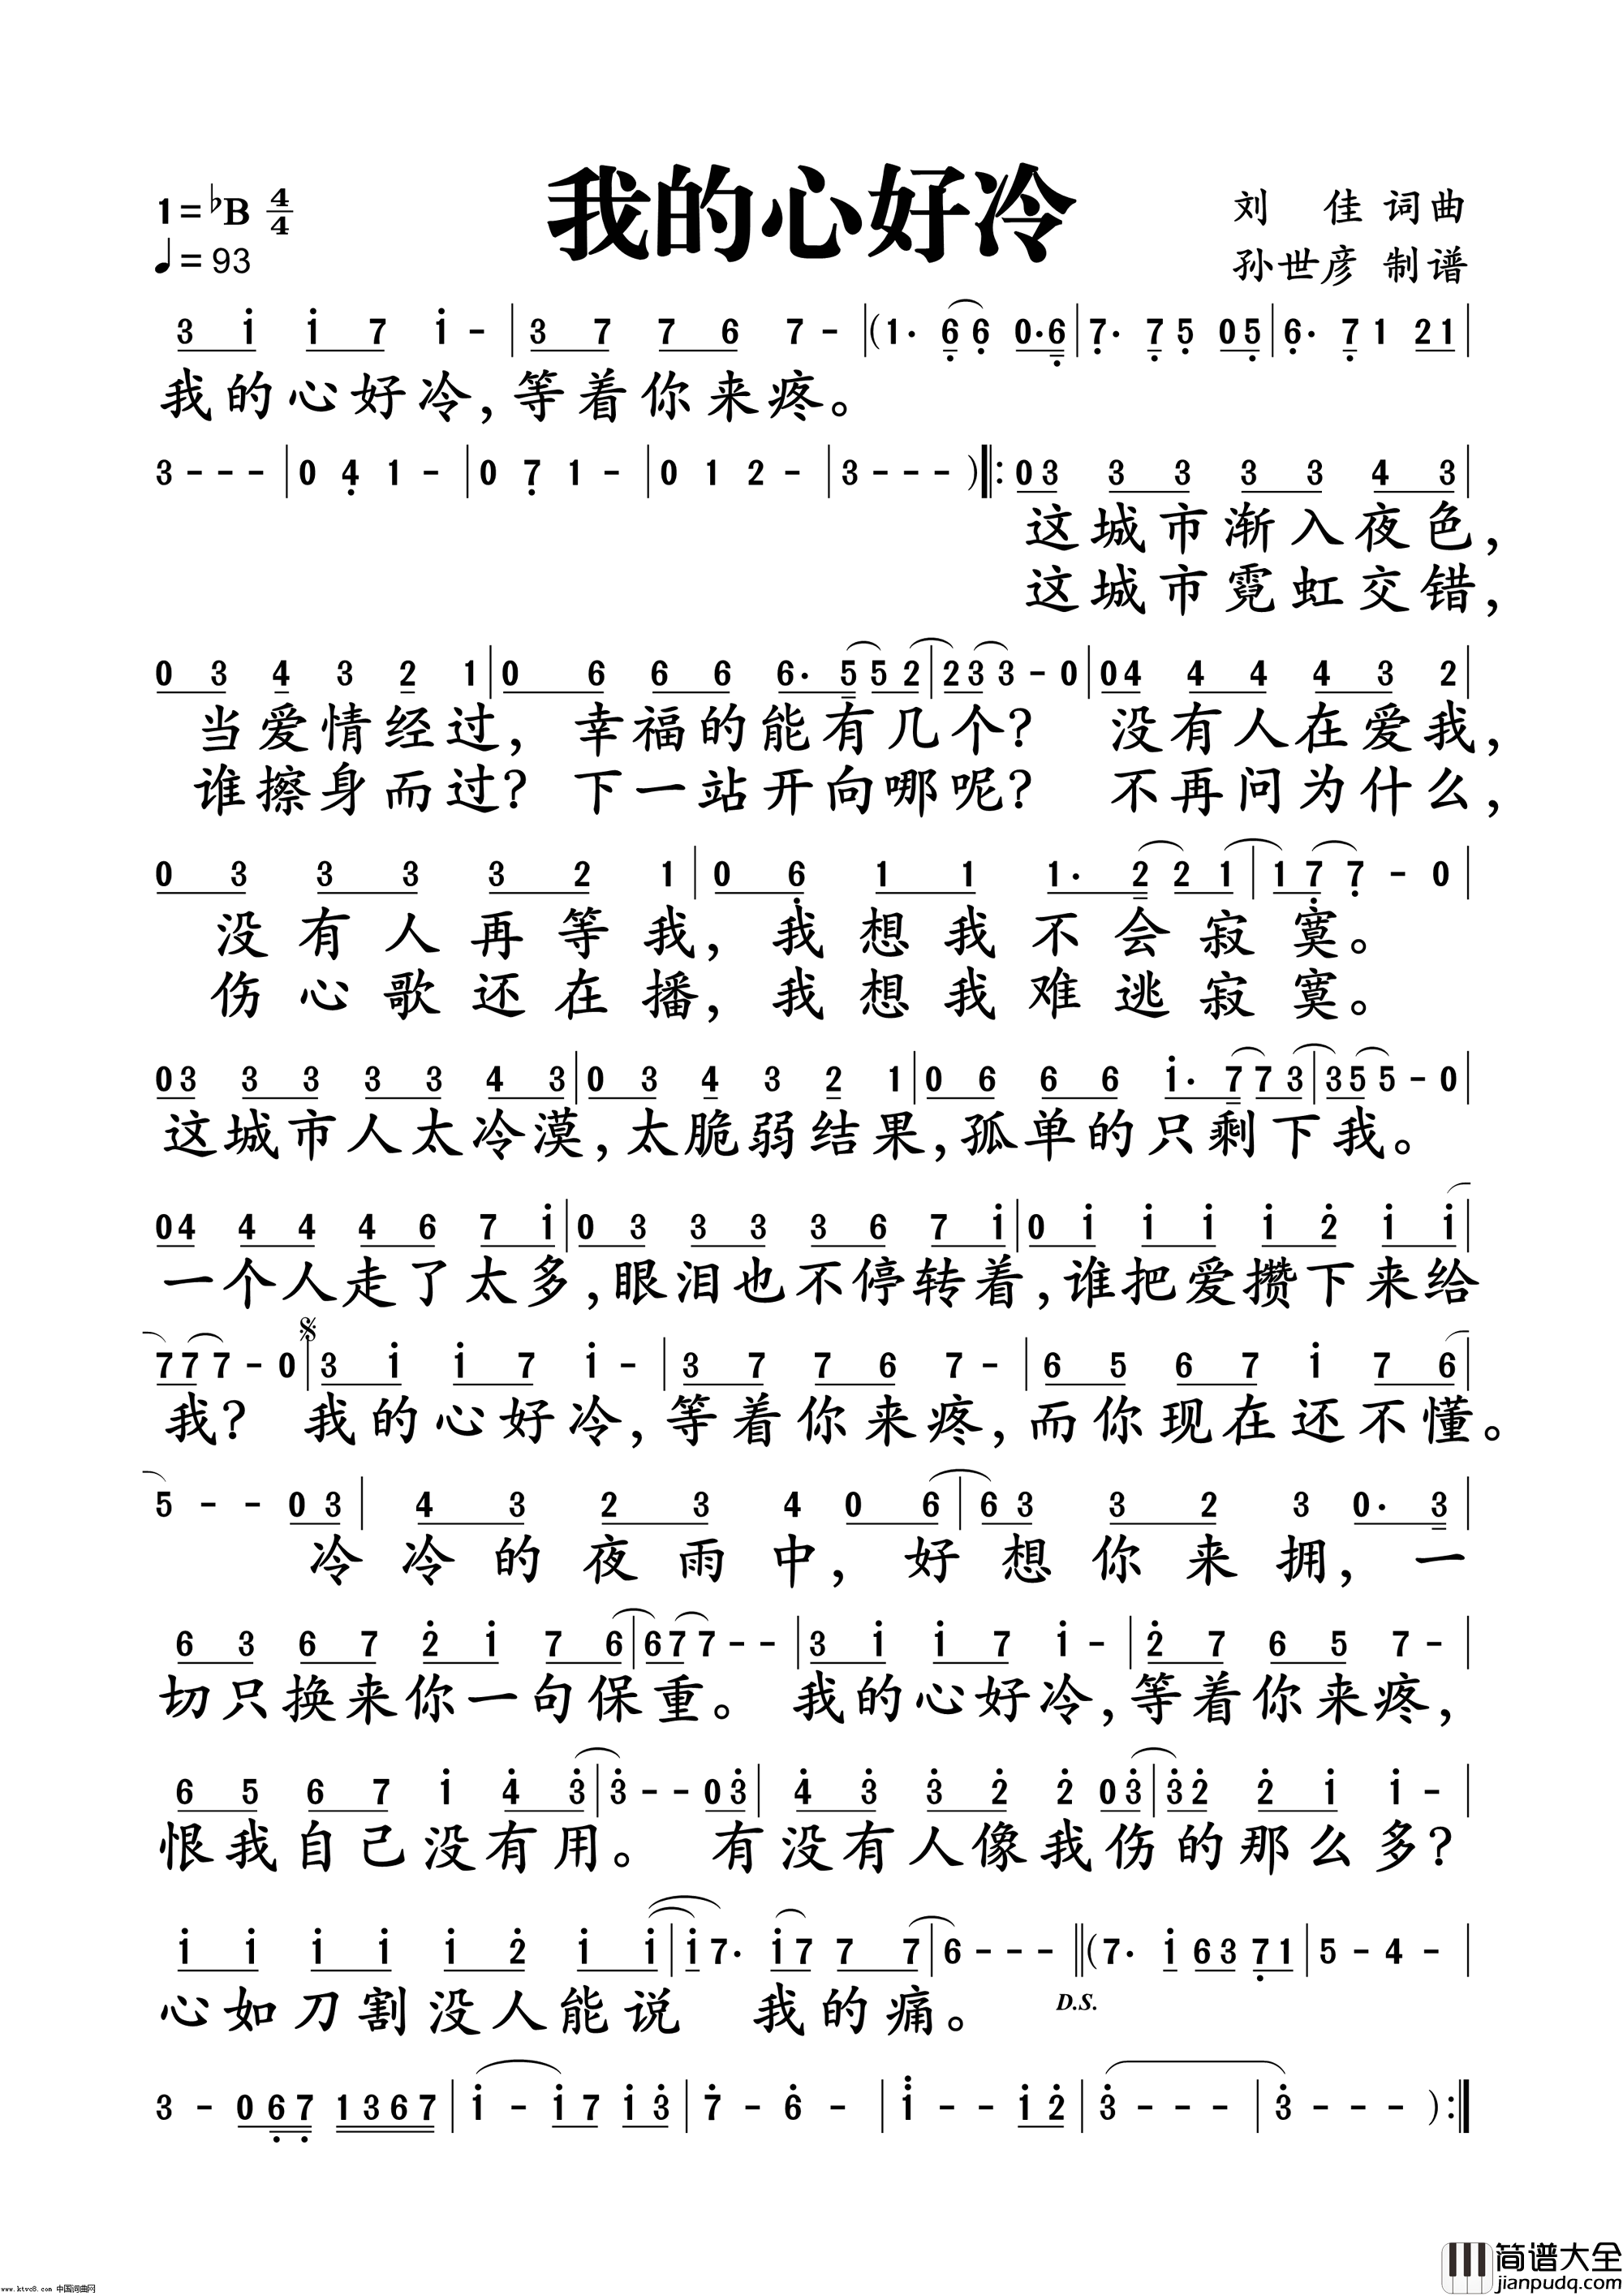 我的心好冷
1=♭B 4/4
♩=93
刘 佳 词曲
孙世彦 制谱
3 i̇ i̇ 7 i̇ - | 3 7 7 6 7 - | (1· 6̣ 6̣ 0·6̣ | 7̣· 7̣ 5̣ 0 5̣ | 6̣· 7̣ 1 2 1 |
我的心好冷,等着你来疼。
3 - - - | 0 4̣ 1 - | 0 7̣ 1 - | 0 1 2 - | 3 - - - ) ‖: 0 3 3 3 3 3 4 3 |
这城市渐入夜色,
这城市霓虹交错,
0 3 4 3 2 1 | 0 6 6 6 6· 5 5 2 | 2 3 3 - 0 | 0 4 4 4 4 3 2 |
当爱情经过, 幸福的能有几个? 没有人在爱我,
谁擦身而过? 下一站开向哪呢? 不再问为什么,
0 3 3 3 3 2 1 | 0 6̣ 1 1 1· 2 2 1 | 1 7̣ 7̣ - 0 |
没有人再等我, 我想我不会寂寞。
伤心歌还在播, 我想我难逃寂寞。
0 3 3 3 3 3 4 3 | 0 3 4 3 2 1 | 0 6 6 6 i̇· 7 7 3 | 3 5 5 - 0 |
这城市人太冷漠,太脆弱结果,孤单的只剩下我。
0 4 4 4 4 6 7 i̇ | 0 3 3 3 3 6 7 i̇ | 0 i̇ i̇ i̇ i̇ 2̇ i̇ i̇ |
一个人走了太多,眼泪也不停转着,谁把爱攒下来给
7 7 7 - 0 | 𝄋 3 i̇ i̇ 7 i̇ - | 3 7 7 6 7 - | 6 5 6 7 i̇ 7 6 |
我? 我的心好冷,等着你来疼,而你现在还不懂。
5 - - 0 3 | 4 3 2 3 4 0 6 | 6 3 3 2 3 0· 3 |
冷冷的夜雨中, 好想你来拥, 一
6 3 6 7 2̇ i̇ 7 6 | 6 7 7 - - | 3 i̇ i̇ 7 i̇ - | 2̇ 7 6 5 7 - |
切只换来你一句保重。 我的心好冷,等着你来疼,
6 5 6 7 i̇ 4̇ 3̇ | 3̇ - - 0 3̇ | 4̇ 3̇ 3̇ 2̇ 2̇ 0 3̇ | 3̇ 2̇ 2̇ i̇ i̇ - |
恨我自己没有用。 有没有人像我伤的那么多?
i̇ i̇ i̇ i̇ i̇ 2̇ i̇ i̇ | i̇ 7· i̇ 7 7 7 | 6 - - - ‖ (7· i̇ 6 3 7̣ 1 | 5 - 4 - |
心如刀割没人能说 我的痛。
D.S.
3 - 0 6̣ 7̣ 1 3 6 7 | i̇ - i̇ 7 i̇ 3̇ | 7̇ - 6̇ - | 1̈ - - i̇ 2̇ | 3̇ - - - | 3̇ - - - ) :‖
www.ktvc8.com 中国词曲网
简谱大全
jianpudq.com